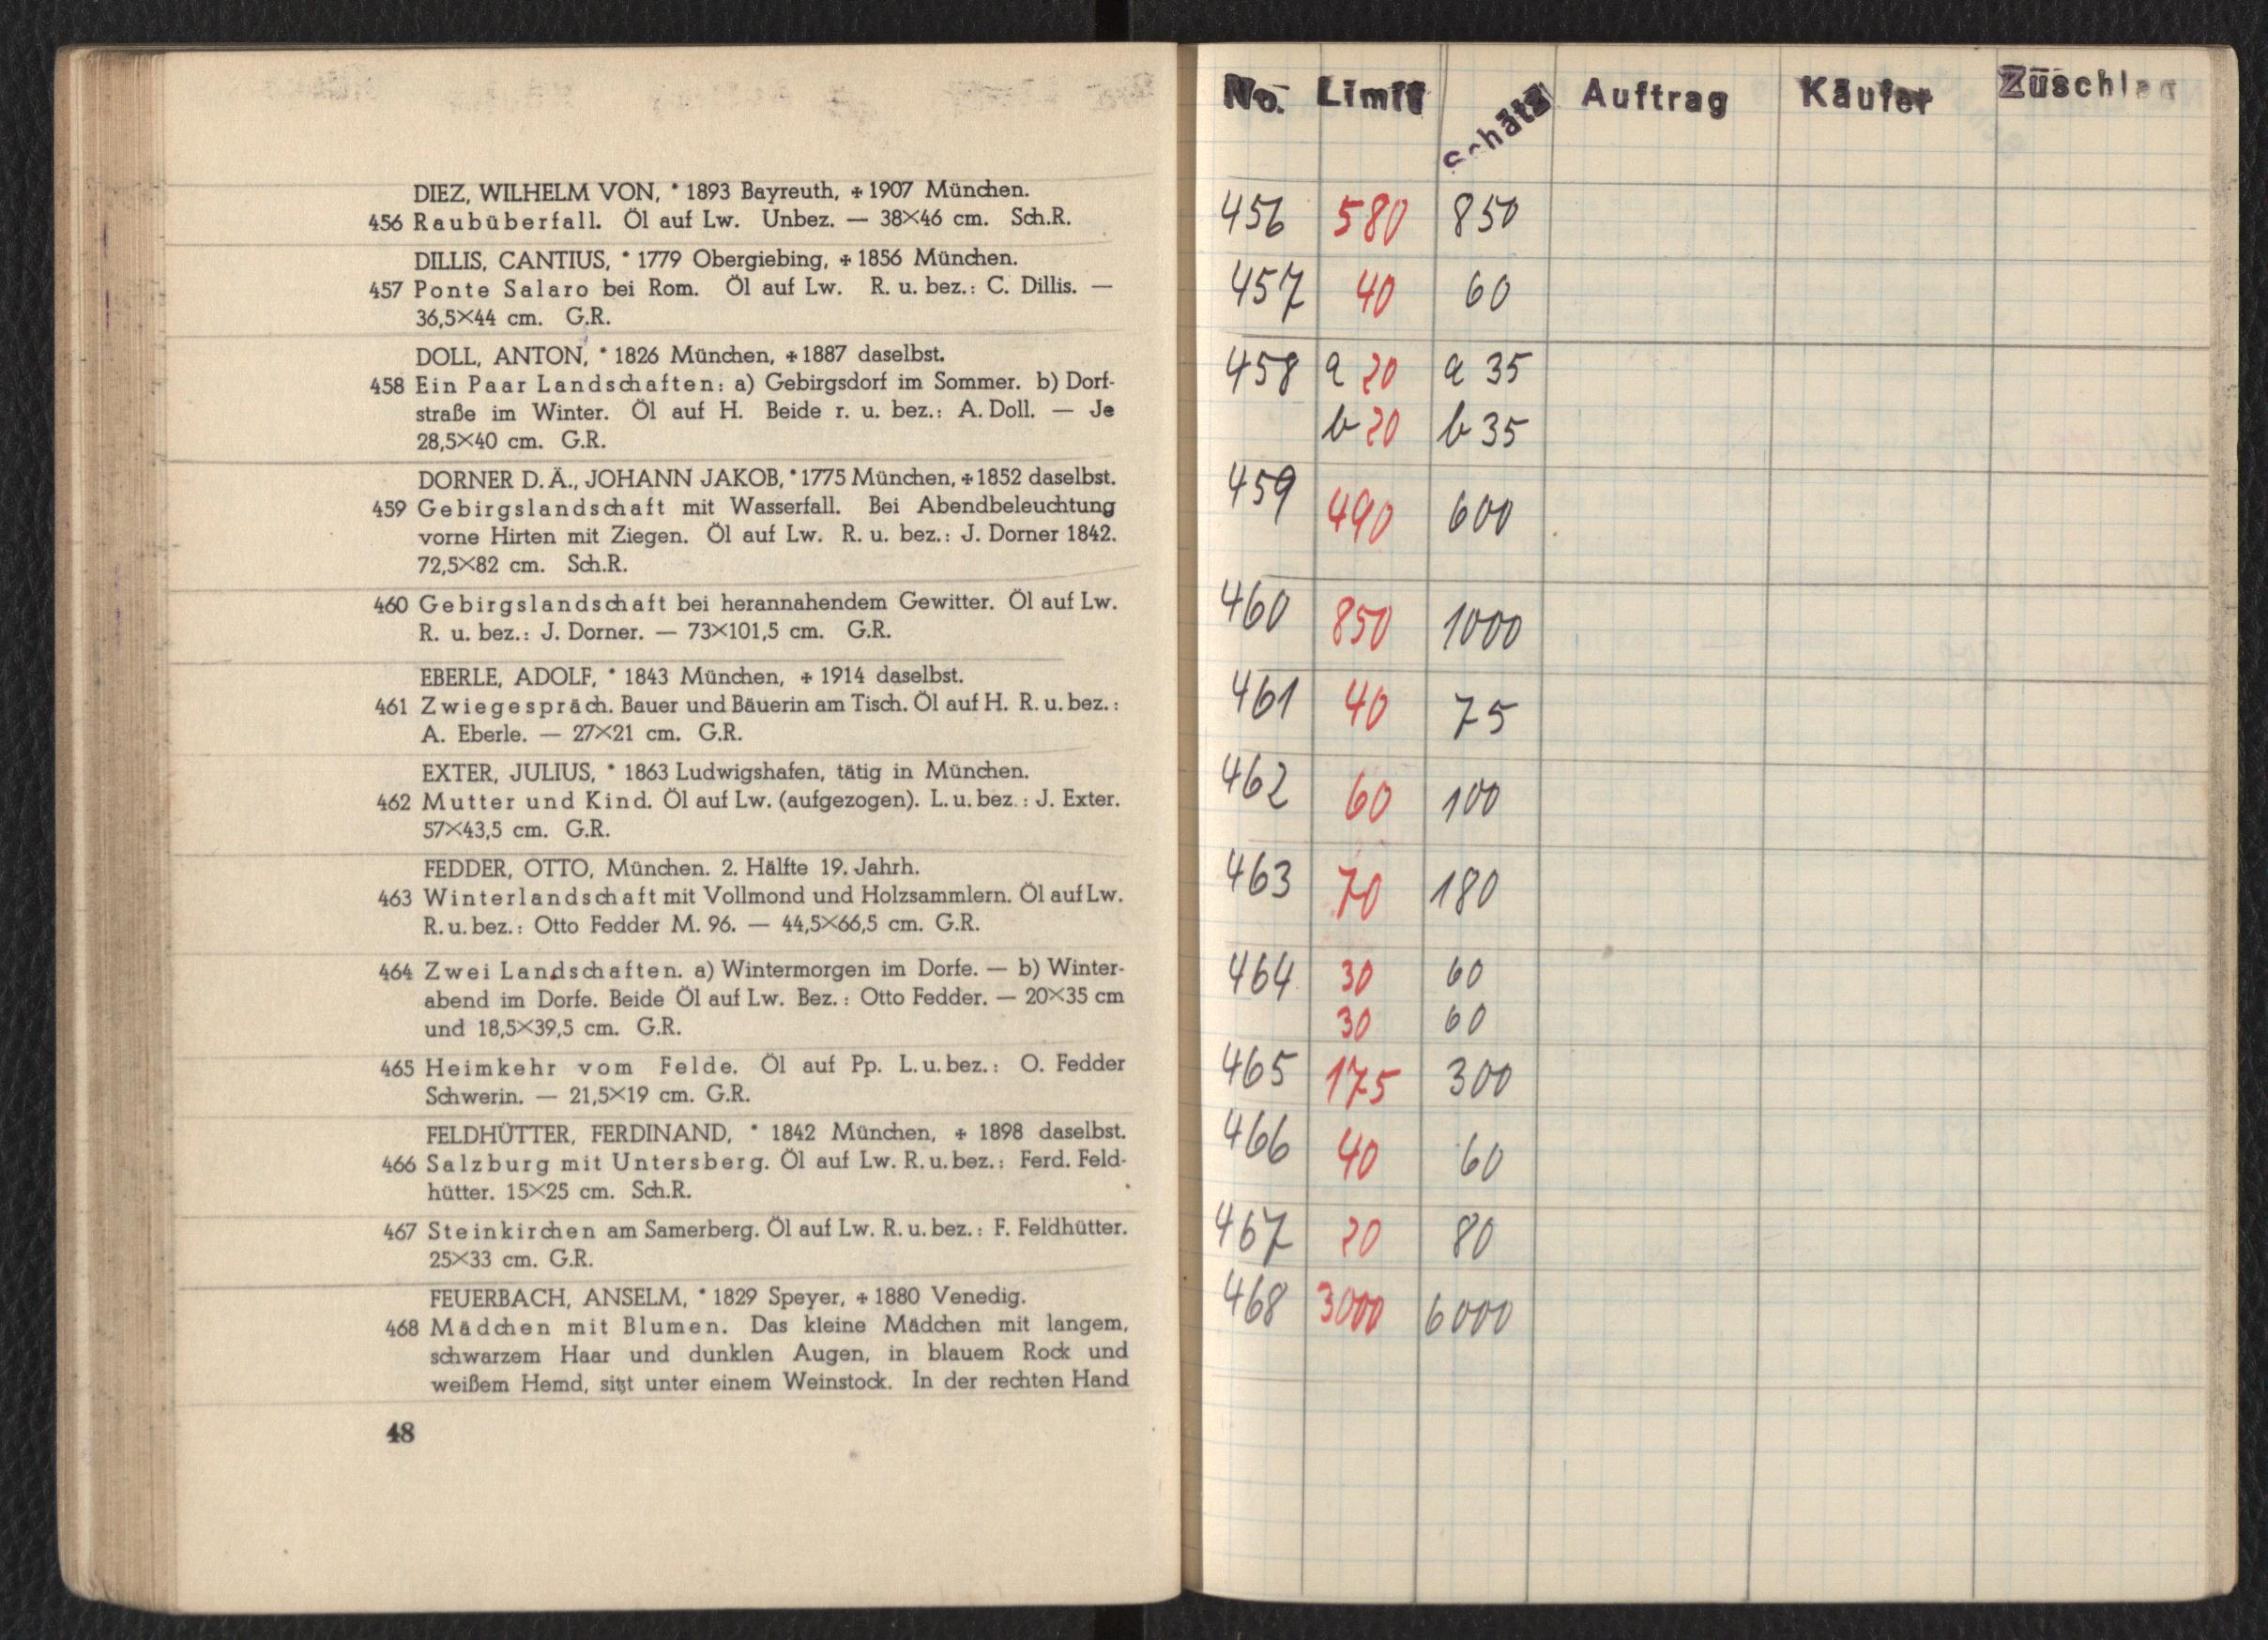 DIEZ, WILHELM VON, * 1893 Bayreuth, ✠ 1907 München.
456 Raubüberfall. Öl auf Lw. Unbez. — 38×46 cm. Sch.R.
DILLIS, CANTIUS, * 1779 Obergiebing, ✠ 1856 München.
457 Ponte Salaro bei Rom. Öl auf Lw. R. u. bez.: C. Dillis. —
36,5×44 cm. G.R.
DOLL, ANTON, * 1826 München, ✠ 1887 daselbst.
458 Ein Paar Landschaften: a) Gebirgsdorf im Sommer. b) Dorf-
straße im Winter. Öl auf H. Beide r. u. bez.: A. Doll. — Je
28,5×40 cm. G.R.
DORNER D. Ä., JOHANN JAKOB, * 1775 München, ✠ 1852 daselbst.
459 Gebirgslandschaft mit Wasserfall. Bei Abendbeleuchtung
vorne Hirten mit Ziegen. Öl auf Lw. R. u. bez.: J. Dorner 1842.
72,5×82 cm. Sch.R.
460 Gebirgslandschaft bei herannahendem Gewitter. Öl auf Lw.
R. u. bez.: J. Dorner. — 73×101,5 cm. G.R.
EBERLE, ADOLF, * 1843 München, ✠ 1914 daselbst.
461 Zwiegespräch. Bauer und Bäuerin am Tisch. Öl auf H. R. u. bez.:
A. Eberle. — 27×21 cm. G.R.
EXTER, JULIUS, * 1863 Ludwigshafen, tätig in München.
462 Mutter und Kind. Öl auf Lw. (aufgezogen). L. u. bez.: J. Exter.
57×43,5 cm. G.R.
FEDDER, OTTO, München. 2. Hälfte 19. Jahrh.
463 Winterlandschaft mit Vollmond und Holzsammlern. Öl auf Lw.
R. u. bez.: Otto Fedder M. 96. — 44,5×66,5 cm. G.R.
464 Zwei Landschaften. a) Wintermorgen im Dorfe. — b) Winter-
abend im Dorfe. Beide Öl auf Lw. Bez.: Otto Fedder. — 20×35 cm
und 18,5×39,5 cm. G.R.
465 Heimkehr vom Felde. Öl auf Pp. L. u. bez.: O. Fedder
Schwerin. — 21,5×19 cm. G.R.
FELDHÜTTER, FERDINAND, * 1842 München, ✠ 1898 daselbst.
466 Salzburg mit Untersberg. Öl auf Lw. R. u. bez.: Ferd. Feld-
hütter. 15×25 cm. Sch.R.
467 Steinkirchen am Samerberg. Öl auf Lw. R. u. bez.: F. Feldhütter.
25×33 cm. G.R.
FEUERBACH, ANSELM, * 1829 Speyer, ✠ 1880 Venedig.
468 Mädchen mit Blumen. Das kleine Mädchen mit langem,
schwarzem Haar und dunklen Augen, in blauem Rock und
weißem Hemd, sitzt unter einem Weinstock. In der rechten Hand
48
No. Limit Schätz Auftrag Käufer Züschlag
456 580 850
457 40 60
458 a 20 a 35
b 20 b 35
459 490 600
460 850 1000
461 40 75
462 60 100
463 70 180
464 30 60
30 60
465 175 300
466 40 60
467 20 80
468 3000 6000